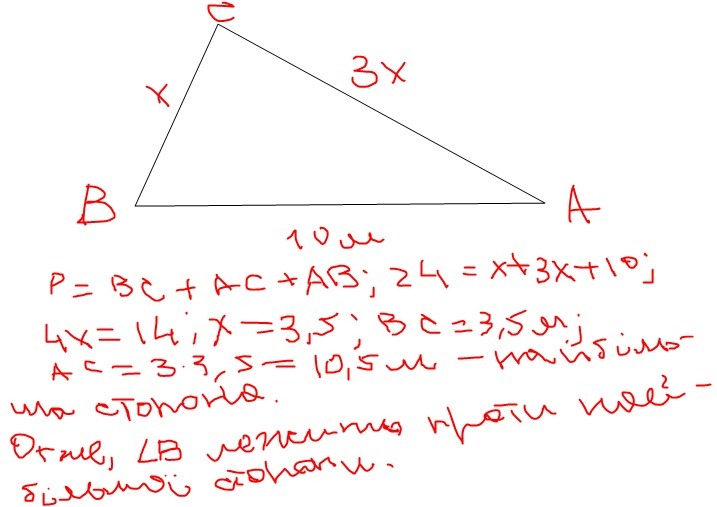 C
x
3x
B
A
10 м
P = BC + AC + AB; 24 = x + 3x + 10;
4x = 14; x = 3,5; BC = 3,5 м;
AC = 3·3,5 = 10,5 м – найбіль-
ша сторона.
Отже, ∠B лежить проти най-
більшої сторони.